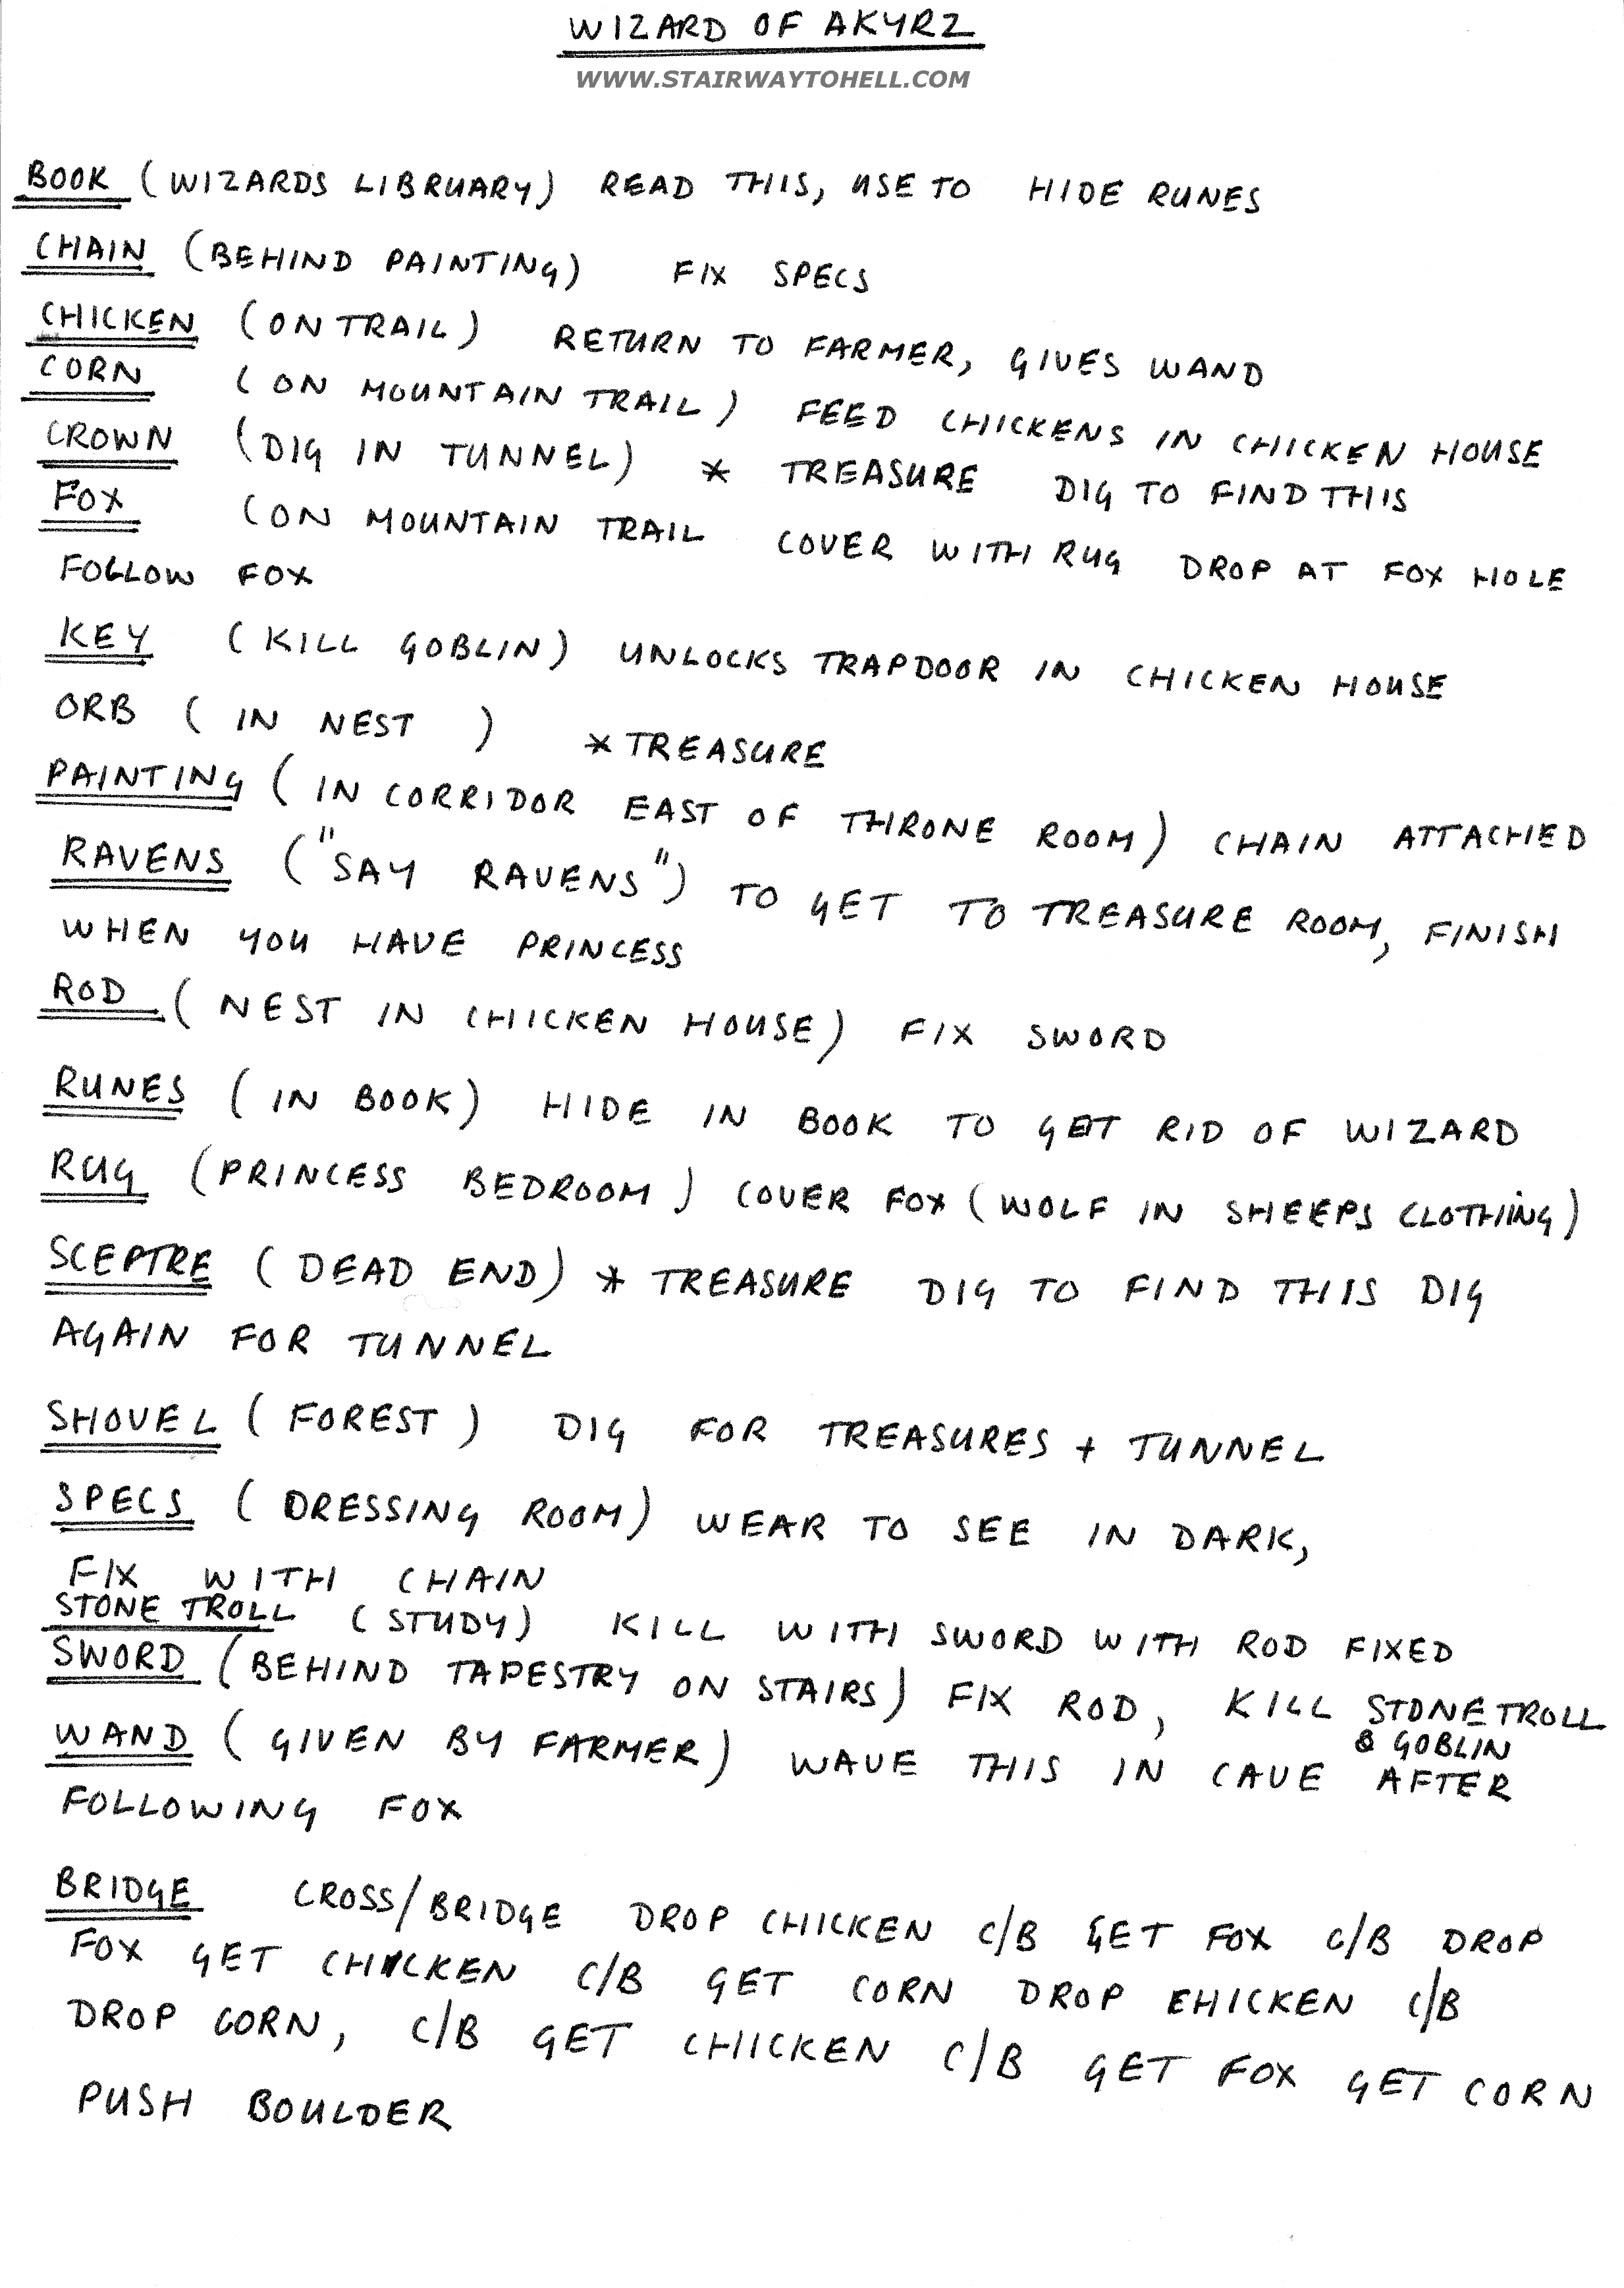 WIZARD OF AKYRZ
WWW.STAIRWAYTOHELL.COM
BOOK (WIZARDS LIBRUARY) READ THIS, USE TO HIDE RUNES
CHAIN (BEHIND PAINTING) FIX SPECS
CHICKEN (ON TRAIL) RETURN TO FARMER, GIVES WAND
CORN (ON MOUNTAIN TRAIL) FEED CHICKENS IN CHICKEN HOUSE
CROWN (DIG IN TUNNEL) * TREASURE DIG TO FIND THIS
FOX (ON MOUNTAIN TRAIL COVER WITH RUG DROP AT FOX HOLE
FOLLOW FOX
KEY (KILL GOBLIN) UNLOCKS TRAPDOOR IN CHICKEN HOUSE
ORB (IN NEST) * TREASURE
PAINTING (IN CORRIDOR EAST OF THRONE ROOM) CHAIN ATTACHED
RAVENS ("SAY RAVENS") TO GET TO TREASURE ROOM, FINISH
WHEN YOU HAVE PRINCESS
ROD (NEST IN CHICKEN HOUSE) FIX SWORD
RUNES (IN BOOK) HIDE IN BOOK TO GET RID OF WIZARD
RUG (PRINCESS BEDROOM) COVER FOX (WOLF IN SHEEPS CLOTHING)
SCEPTRE (DEAD END) * TREASURE DIG TO FIND THIS DIG
AGAIN FOR TUNNEL
SHOVEL (FOREST) DIG FOR TREASURES + TUNNEL
SPECS (DRESSING ROOM) WEAR TO SEE IN DARK,
FIX WITH CHAIN
STONE TROLL (STUDY) KILL WITH SWORD WITH ROD FIXED
SWORD (BEHIND TAPESTRY ON STAIRS) FIX ROD, KILL STONETROLL
& GOBLIN
WAND (GIVEN BY FARMER) WAVE THIS IN CAVE AFTER
FOLLOWING FOX
BRIDGE CROSS/BRIDGE DROP CHICKEN C/B GET FOX C/B DROP
FOX GET CHICKEN C/B GET CORN DROP CHICKEN C/B
DROP CORN, C/B GET CHICKEN C/B GET FOX GET CORN
PUSH BOULDER